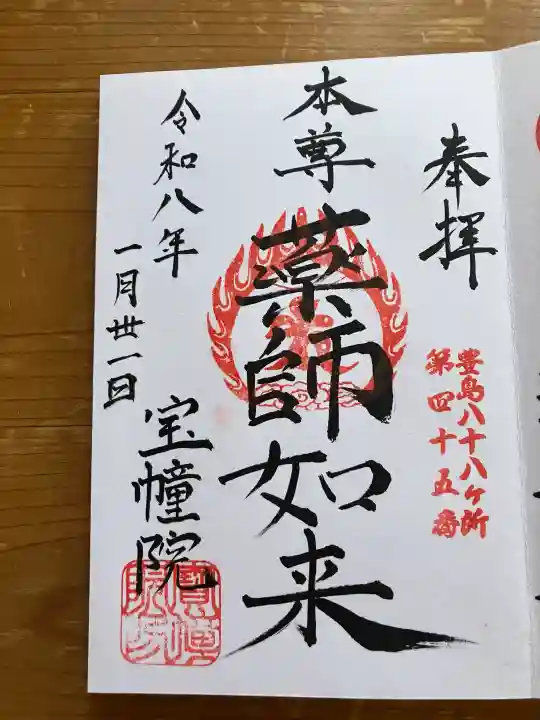 奉拝
豊島八十八ヶ所
第四十五番
本尊
薬師如来
令和八年
一月丗一日
宝幢院